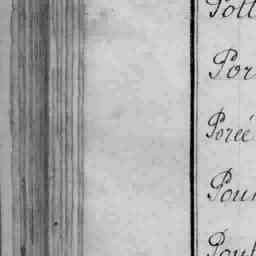 Pott
Por
Porée
Pour
Poul